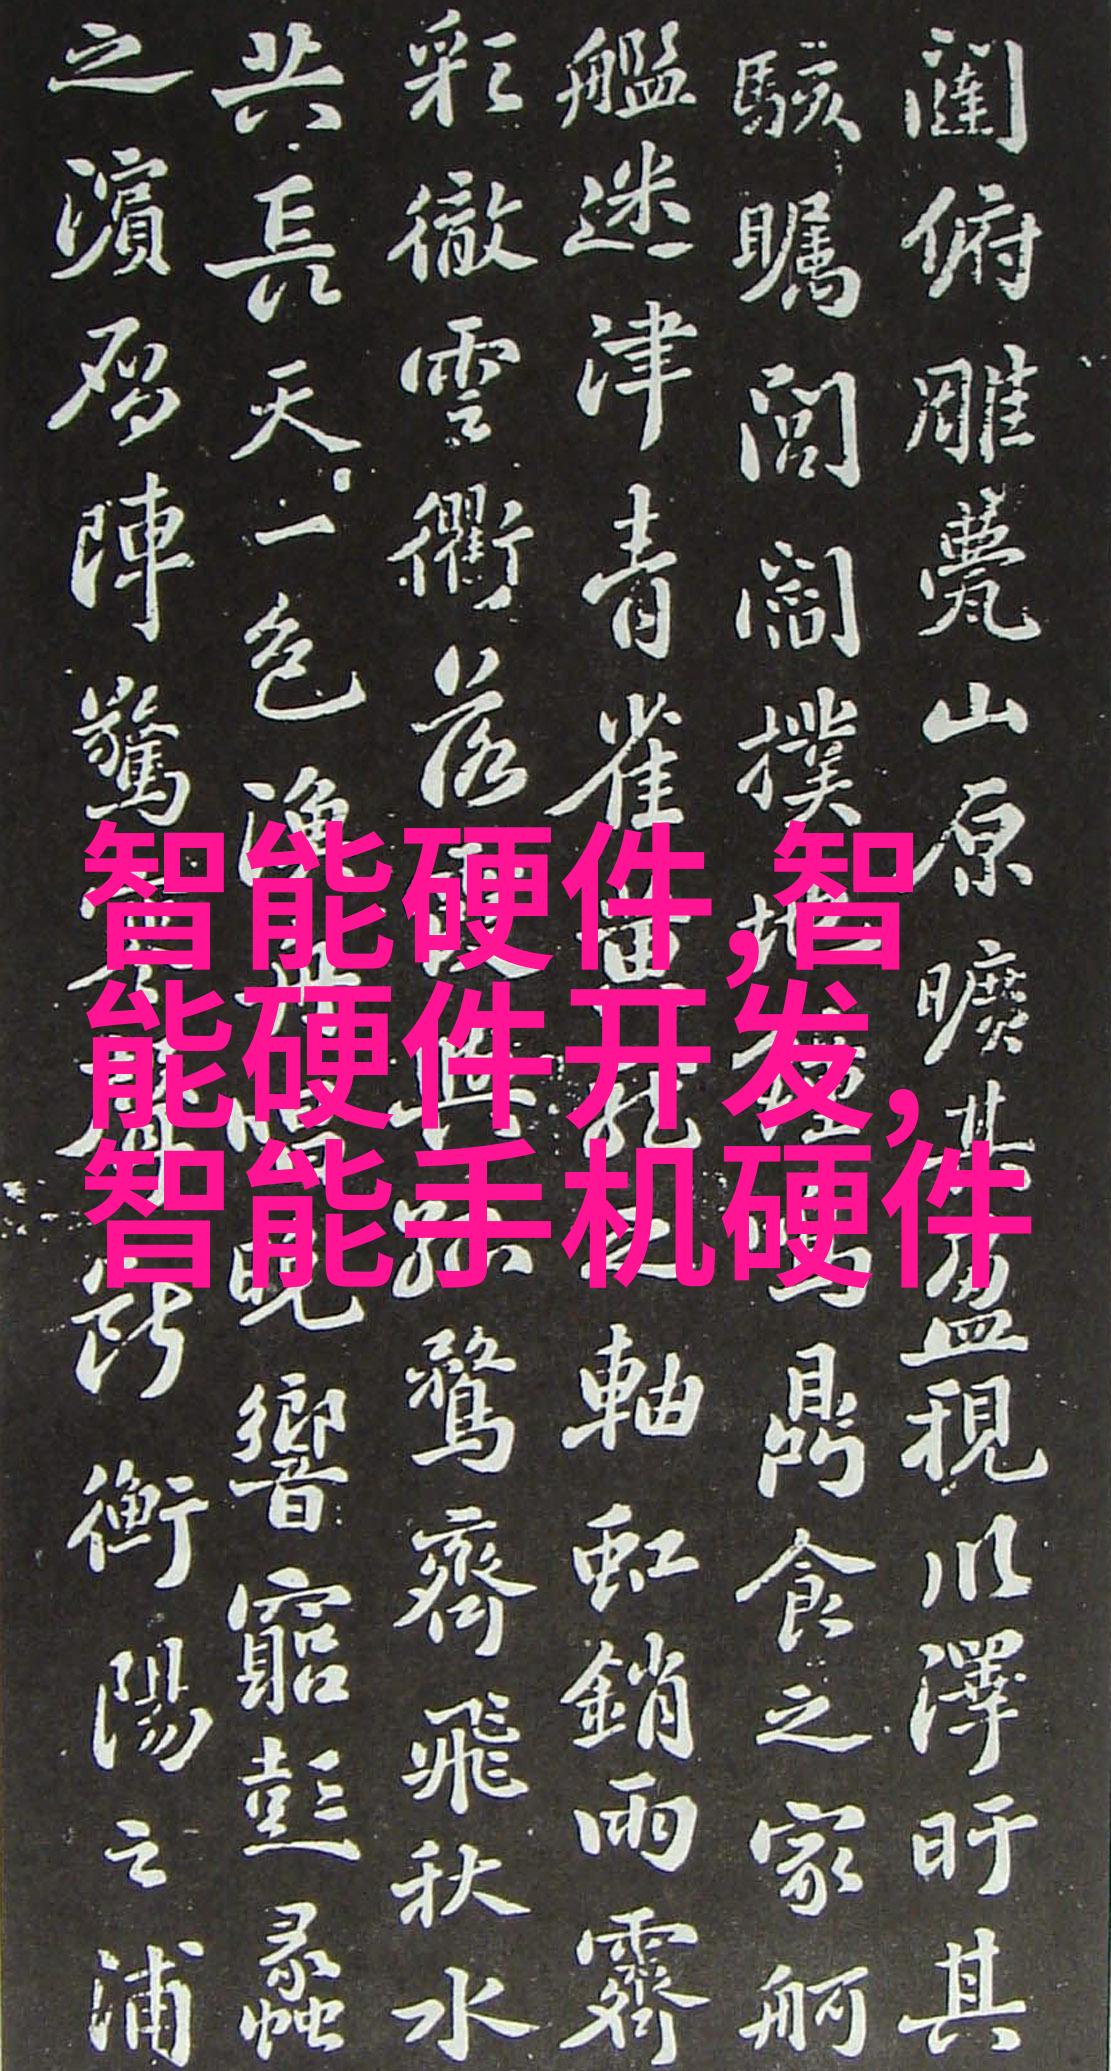 闥俯雕甍山原曠其盈視川澤盱其
駭矚閭閻撲地鍾鳴鼎食之家舸
艦迷津青雀黃龍之軸虹銷雨霽
彩徹雲衢落霞與孤鶩齊飛秋水
共長天一色漁舟唱晚響窮彭蠡
之濱雁陣驚寒聲斷衡陽之浦
智能硬件,智
能硬件开发,
智能手机硬件